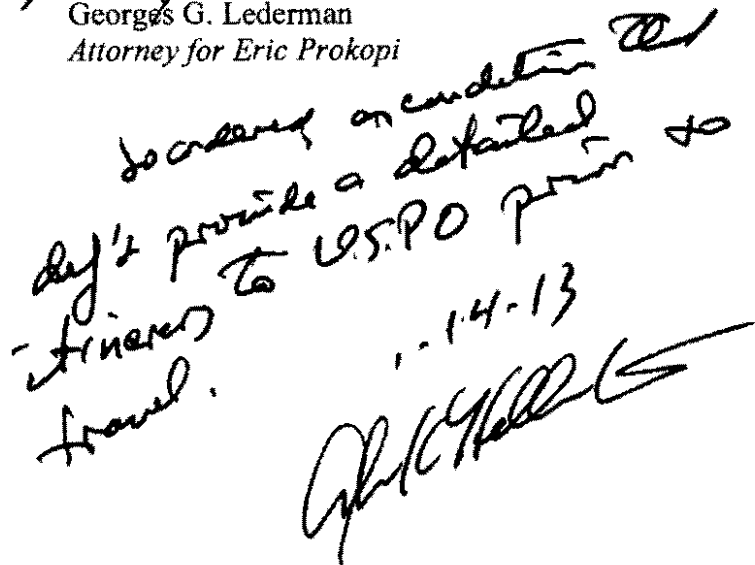 Georges G. Lederman
Attorney for Eric Prokopi
So ordered on condition that
def't provide a detailed
itinerary to U.S.P.O prior to
travel.
1-14-13